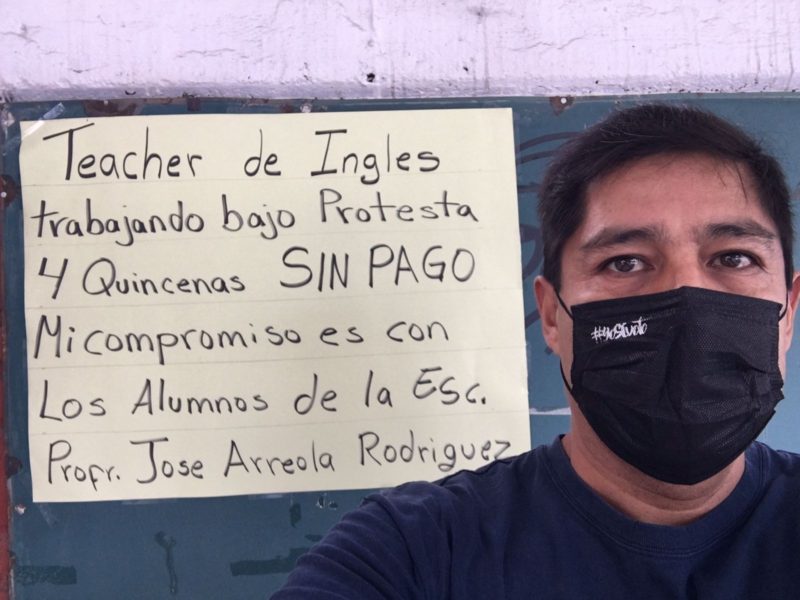 Teacher de Ingles
trabajando bajo Protesta
4 Quincenas SIN PAGO
Mi compromiso es con
Los Alumnos de la Esc.
Profr. Jose Arreola Rodriguez
#yosívoto